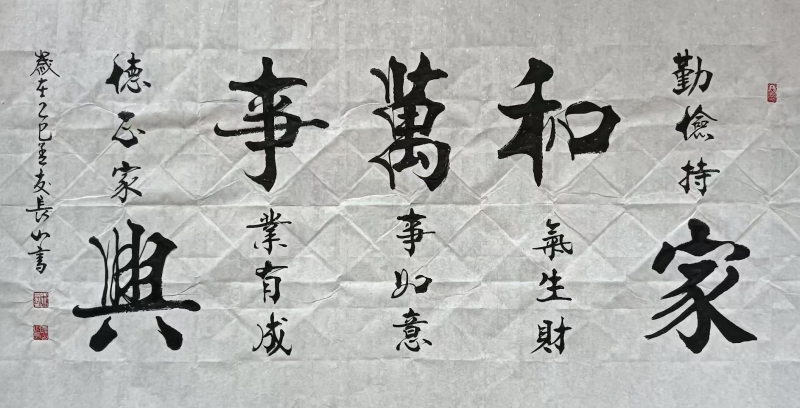 勤儉持家
和氣生財
萬事如意
事業有成
德正家興
歲在乙巳孟友長山書